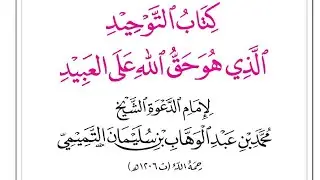 كِتَابُ التَّوْحِيدِ
الَّذِي هُوَ حَقُّ اللهِ عَلَى العَبِيدِ
لِإِمَامِ الدَّعْوَةِ الشَّيْخِ
مُحَمَّدِ بْنِ عَبْدِ الْوَهَّابِ بْنِ سُلَيْمَانَ التَّمِيمِيِّ
رَحِمَهُ اللهُ (ت ١٢٠٦هـ)